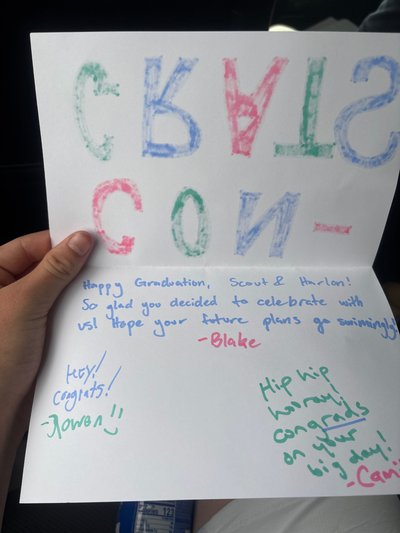 CON-
GRATS
Happy Graduation, Scout & Harlon!
So glad you decided to celebrate with
us! Hope your future plans go swimmingly!
-Blake
HEY!
Congrats!
-Rowen :)
Hip hip
hooray!
congrads
on your
big day!